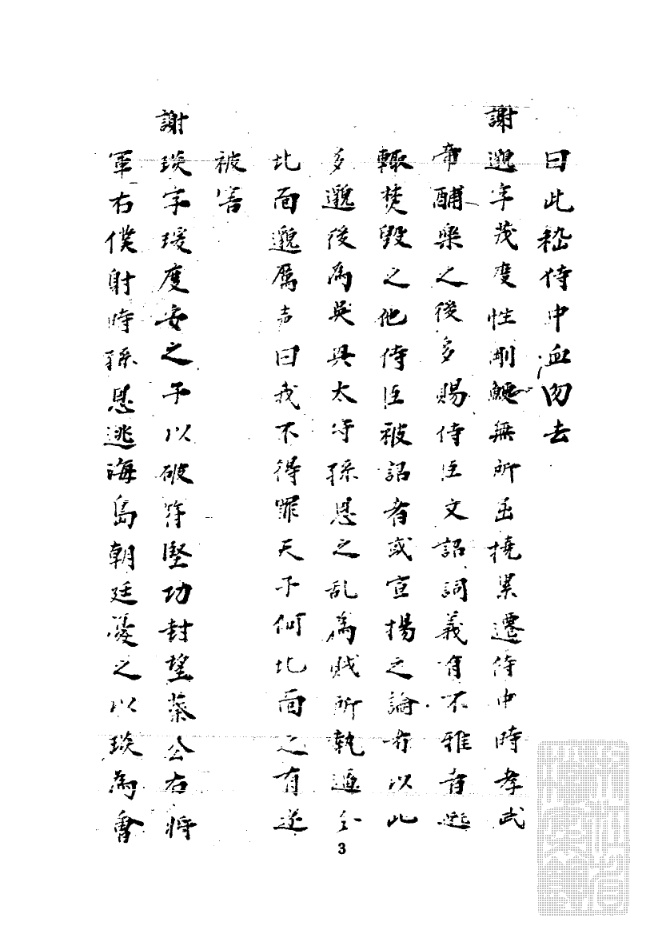 曰此嵇侍中血勿去
謝邈字茂度性剛鯁無所屈撓累遷侍中時孝武
帝酣樂之後多賜侍臣文詔詞義有不雅者邈
輒焚毀之他侍臣被詔者或宣揚之論者以此
多邈後為吳興太守孫恩之乱為賊所執逼令
北面邈厲声曰我不得罪天子何北面之有遂
被害
謝琰字瑗度安之子以破苻堅功封望蔡公右將
軍右僕射時孫恩逃海島朝廷憂之以琰為會
3